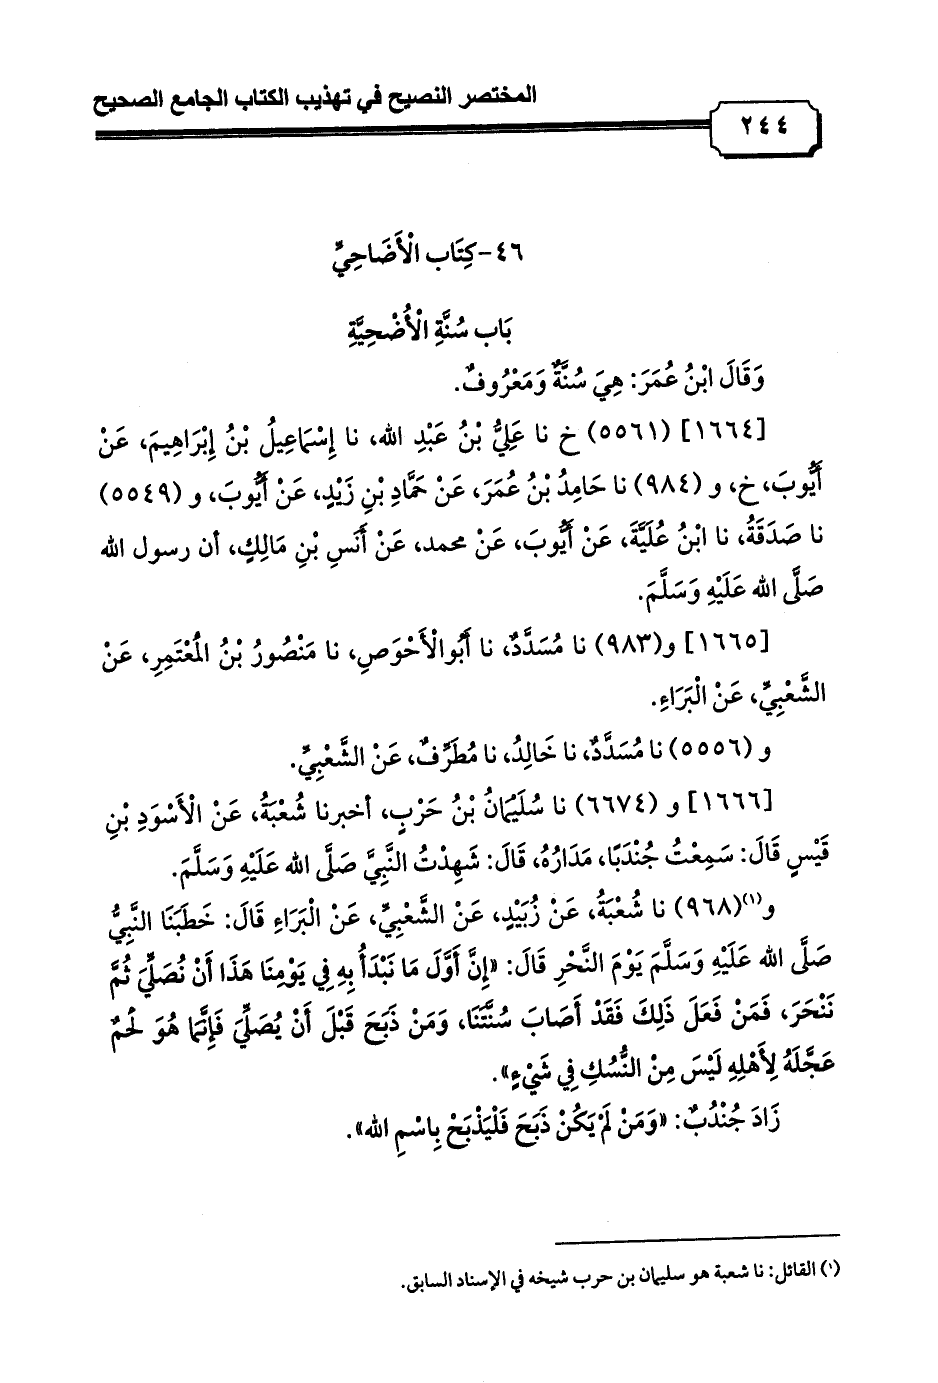 المختصر النصيح في تهذيب الكتاب الجامع الصحيح
٢٤٤
٤٦- كِتَاب الْأَضَاحِيِّ
بَاب سُنَّةِ الْأُضْحِيَّةِ
وَقَالَ ابْنُ عُمَرَ: هِيَ سُنَّةٌ وَمَعْرُوفٌ.
[١٦٦٤] (٥٥٦١) خ نا عَلِيُّ بْنُ عَبْدِ الله، نا إِسْمَاعِيلُ بْنُ إِبْرَاهِيمَ، عَنْ
أَيُّوبَ، خ، و (٩٨٤) نا حَامِدُ بْنُ عُمَرَ، عَنْ حَمَّادِ بْنِ زَيْدٍ، عَنْ أَيُّوبَ، و (٥٥٤٩)
نا صَدَقَةُ، نا ابْنُ عُلَيَّةَ، عَنْ أَيُّوبَ، عَنْ محمد، عَنْ أَنَسِ بْنِ مَالِكٍ، أن رسول الله
صَلَّى الله عَلَيْهِ وَسَلَّمَ.
[١٦٦٥] و(٩٨٣) نا مُسَدَّدٌ، نا أَبُوالْأَحْوَصِ، نا مَنْصُورُ بْنُ الْمُعْتَمِرِ، عَنْ
الشَّعْبِيِّ، عَنْ الْبَرَاءِ.
و (٥٥٥٦) نا مُسَدَّدٌ، نا خَالِدُ، نا مُطَرِّفٌ، عَنْ الشَّعْبِيِّ.
[١٦٦٦] و (٦٦٧٤) نا سُلَيْمَانُ بْنُ حَرْبٍ، أخبرنا شُعْبَةُ، عَنْ الْأَسْوَدِ بْنِ
قَيْسٍ قَالَ: سَمِعْتُ جُنْدَبًا، مَدَارُهُ، قَالَ: شَهِدْتُ النَّبِيَّ صَلَّى الله عَلَيْهِ وَسَلَّمَ.
و(١)(٩٦٨) نا شُعْبَةُ، عَنْ زُبَيْدٍ، عَنْ الشَّعْبِيِّ، عَنْ الْبَرَاءِ قَالَ: خَطَبَنَا النَّبِيُّ
صَلَّى الله عَلَيْهِ وَسَلَّمَ يَوْمَ النَّحْرِ قَالَ: «إِنَّ أَوَّلَ مَا نَبْدَأُ بِهِ فِي يَوْمِنَا هَذَا أَنْ نُصَلِّيَ ثُمَّ
نَنْحَرَ، فَمَنْ فَعَلَ ذَلِكَ فَقَدْ أَصَابَ سُنَّتَنَا، وَمَنْ ذَبَحَ قَبْلَ أَنْ يُصَلِّيَ فَإِنَّمَا هُوَ لَحْمٌ
عَجَّلَهُ لِأَهْلِهِ لَيْسَ مِنْ النُّسُكِ فِي شَيْءٍ».
زَادَ جُنْدُبٌ: «وَمَنْ لَمْ يَكُنْ ذَبَحَ فَلْيَذْبَحْ بِاسْمِ الله».
(١) القائل: نا شعبة هو سليمان بن حرب شيخه في الإسناد السابق.